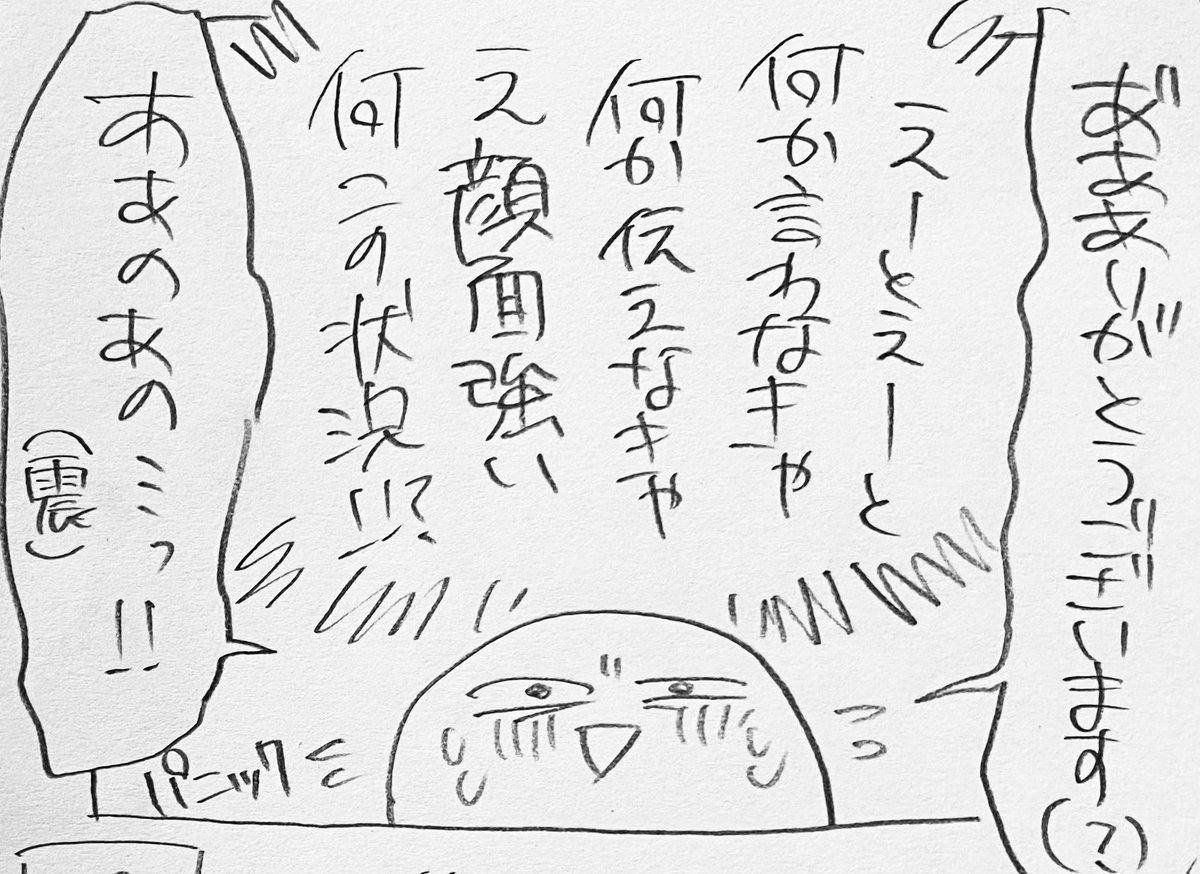 あ゛ああり゛がとうございます(?)
えーとえーと
何か言わなきゃ
何か伝えなきゃ
え顔面強い
何この状況!?
ああのあの…っ!!
(震)
パニック